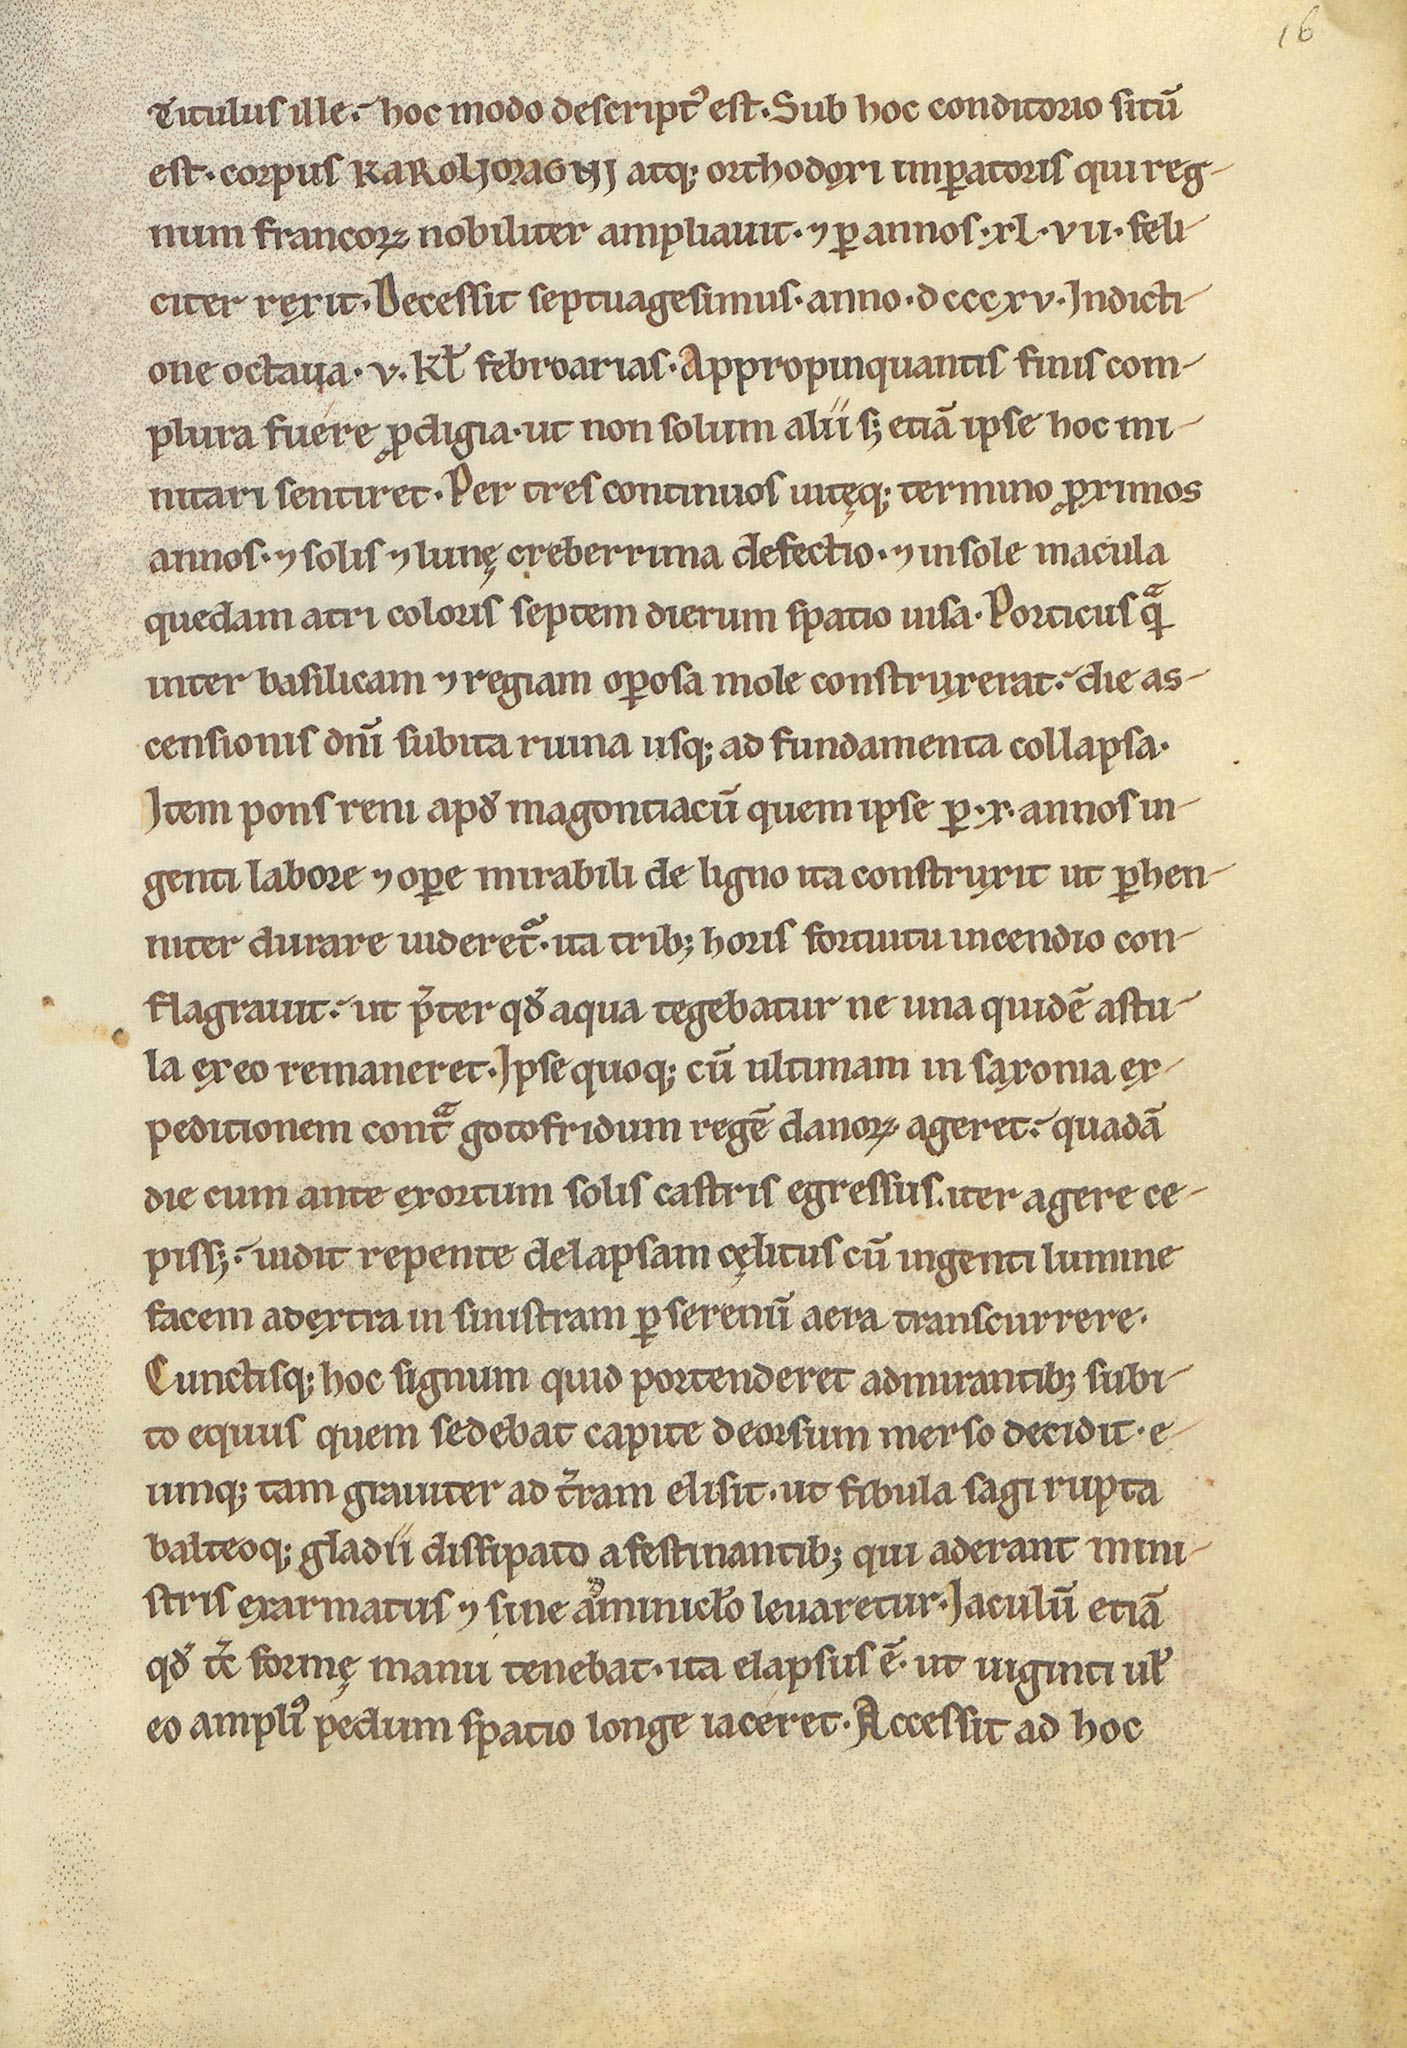 16
Titulus ille. hoc modo descriptꝰ est. Sub hoc conditorio sitū
est. corpus KAROLI MAGNI atq; orthodoxi imꝑatoris qui reg-
num francoꝝ nobiliter ampliauit. ⁊ ꝑ annos. xl. vii. feli-
citer rexit. Decessit septuagesimus. anno. dcccxv. Indicti-
one octaua. v. kł februarias. Appropinquantis finis com-
plura fuére ꝓdigia. ut non solum alii s; etiā ipse hoc mi-
nitari sentiret. Per tres continuos uitęq; termino ꝓximos
annos. ⁊ solis ⁊ lunę creberrima defectio. ⁊ in sole macula
quedam atri coloris septem dierum spatio uisa. Porticus qͣ
inter basilicam ⁊ regiam oꝑosa mole construxerat. die as-
censionis dn̄i subita ruina usq; ad fundamenta collapsa.
Item pons reni apđ magontiacū quem ipse ꝑ. x. annos in-
genti labore ⁊ oꝑe mirabili de ligno ita construxit ut ꝑhen-
niter durare uideretᷓ. ita trib; horis fortuitu incendio con-
flagrauit. ut p̄ter qđ aqua tegebatur ne una quidē astu-
la ex eo remaneret. Ipse quoq; cū ultimam in saxonia ex-
peditionem contᷓ gotofridum regē danoꝝ ageret. quadā
die cum ante exortum solis castris egressus. iter agere ce-
piss;. uidit repente delapsam cęlitus cū ingenti lumine
facem adextra in sinistram ꝑ serenū aera transcurrere.
Cunctisq; hoc signum quid portenderet admirantib; subi-
to equus quem sedebat capite deorsum merso decidit. e-
umq; tam grauiter ad t̄ram elisit. ut fibula sagi rupta
balteoq; gladii dissipato a festinantib; qui aderant mini-
stris exarmatus ⁊ sine aminicł́o leuaretur. Iaculū etiā
qđ tc̄ formę manu tenebat. ita elapsus ē. ut uiginti uł
eo ampliꝰ pedum spatio longe iacéret. Accessit ad hoc